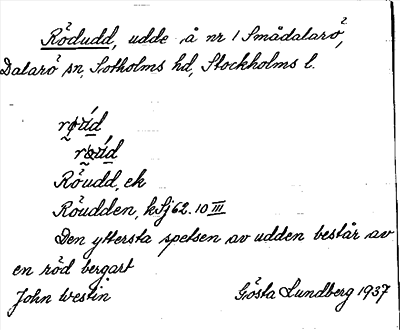 Rödudd, udde å nr 1 Smådalarö,
Dalarö sn, Sotholms hd, Stockholms l.
Röudd, ek
Röudden, kSj 62.10 III
Den yttersta spetsen av udden består av
en röd bergart
John Westin Gösta Lundberg 1937